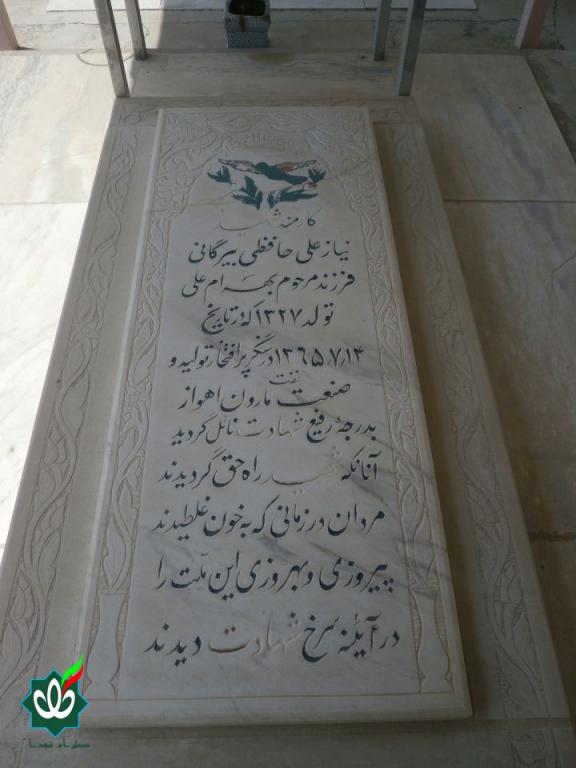 کارمند شهید
نیازعلی حافظی بیرگانی
فرزند مرحوم بهرام علی
تولد ۱۳۲۷ که در تاریخ
۱۳۶۵٫۷٫۱۳ در سنگر پرافتخار تولید و
صنعت نفت مارون اهواز
بدرجهٔ رفیع شهادت نائل گردید
آنانکه شهید راه حق گردیدند
مردان در زمانی که به خون غلطیدند
پیروزی و بهروزی این ملّت را
در آیئنه سرخ شهادت دیدند